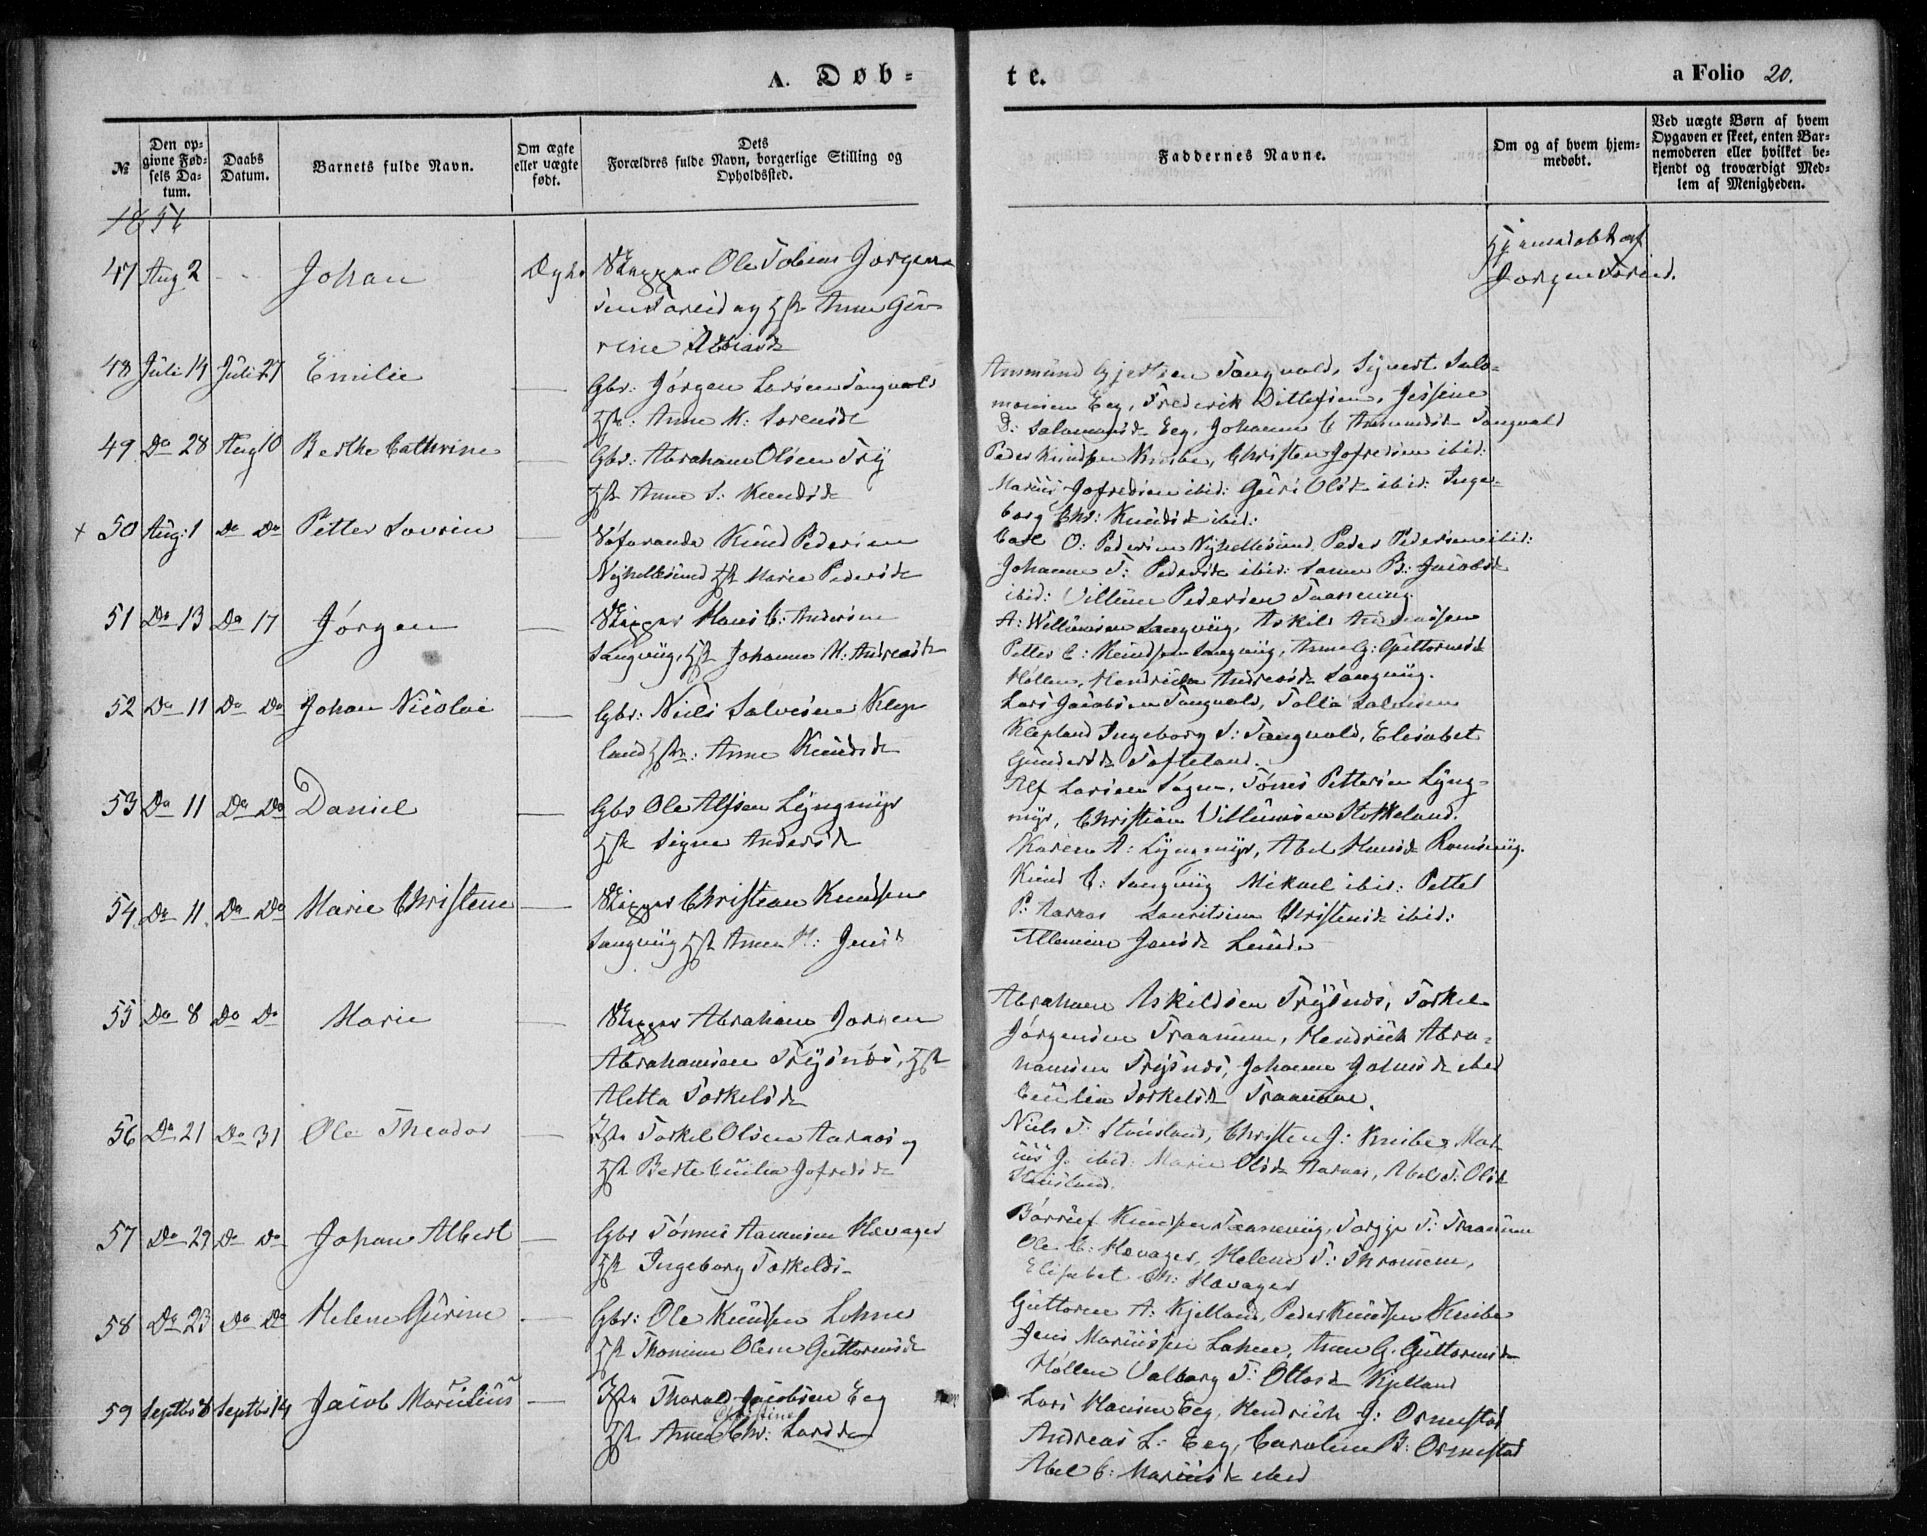 A. Døb-
te.
a Folio 20.
№
Den op-
givne Fød-
sels Da-
tum.
Daabs
Datum.
Barnets fulde Navn.
Om ægte
eller uægte
født.
Dets
Forældres fulde Navn, borgerlige Stilling og
Opholdssted.
Faddernes Navne.
Om og af hvem hjem-
medøbt.
Ved uægte Børn af hvem
Opgaven er skeet, enten Bar-
nemoderen eller hvilket be-
kjendt og troværdigt Med-
lem af Menigheden.
1851
47 Aug 2 Johan Ægte Skipper Ole Tobias Jørgen-
sen og Hst Anne Gu-
rine
Hjemmedøbt af
Jørgen
48 Juli 14 Juli 27 Emilie — Gbr: Jørgen Larsen Tangvald
Hst: Anne M: Sørensd
Ammund Gjertsen Tangvald, Sigvert Salo-
monsen Eeg, Frederik Ditlefsen, Jessine
D: Salomonsd Eeg, Johanne C Ammundsd Tangvald
49 Do 28 Aug 10 Berthe Cathrine — Gbr: Abraham Olsen Try
Hst Anne S: Knudsd
Peder Knudsen Knibe, Christen Jofredsen ibid:
Marius Jofredsen ibid: Guri Olsd ibid: Inge-
borg Chr: Knudsd ibid:
+ 50 Aug: 1 Do Do Petter Sovrin — Søfarende Knud Pedersen
Nyhellesund Hst Marie Pedersd
Carl O: Pedersen Nyhellesund Peder Pedersen ibid:
Johanne T: Pedersd ibid: B: Jacobsd
ibid: Villum Pedersen
51 Do 13 Do 17 Jørgen — Skipper Hans C: Andersen
Langviig, Hst Johanne M: Andreasd
A: Willumsen Langviig, Askild
Petter C: Knudsen Langviig, Anne G: Guttormsd
Høllen, Andreasd Langviig.
52 Do 11 Do Do Johan Nicolai — Gbr: Niels Salvesen Klep-
land Hst: Anne Knudsd
Lars Jacobsen Tangvald, Salvesen
Klepland Ingeborg S: Tangvald, Elisabet
Gundersd Tofteland.
53 Do 11 Do Do Daniel — Gbr Ole Alfsen Lyngmyr
Hst Signe Andersd
Alf Larsen Søgne, Tønes Pettersen Lyng-
myr, Christian Villumsen Stokkeland.
Karen A: Lyngmyr, Abel Hansd Romsviig.
54 Do 11 Do Do Marie Christene — Skipper Christian Knudsen
Langviig Hst Anne M: Jensd
Knud C: Langviig Mikael ibid: Petter
P: Aaraas Christensd ibid:
Jensd Lunde
55 Do 8 Do Do Marie — Skipper Abraham Jørgen
Abrahamsen Trysnes, Hst
Aletta Torkelsd
Abraham Askildsen Trysnes, Torkel
Jørgensen Traanum, Hendrich Abra-
hamsen Trysnes, Johanne ibid
Cecilia Torkelsd Traanum.
56 Do 21 Do 31 Ole Theodor — Torkel Olsen Aaraas og
Hst Berte Cecilia Jofredsd
Niels T: Stausland, Christen J: Knibe, Mar-
ius J. ibid: Marie Olsd Aaraas, Abel T: Olsd
Stausland.
57 Do 29 Do Do Johan Albert — Gbr Tønnes Aanensen Hævager
Hst Ingeborg Torkelds
Knudsen Torgje T: Traanum
Ole C: Hævager, Helene T: Thronum,
Elisabet Ch: Hævager
58 Do 23 Do Do Helene Gurine — Gbr: Ole Knudsen Lohne
Hst Thomine Olene Guttormsd
Guttorm A: Kjelland, Peder Knudsen Knibe
Jens Mariussen Lohne, Anne G. Guttormsd
Høllen Valborg T: Ottosd Kjelland
59 Septbr 8 Septbr 14 Jacob Marselius — Tharald Jacobsen Eeg
Christine
Hst Anne Chr: Larsd
Lars Hansen Eeg, Hendrich J: Ormestad
Andreas L: Eeg, Caroline B: Ormestad
Abel C: Mariusd ibid